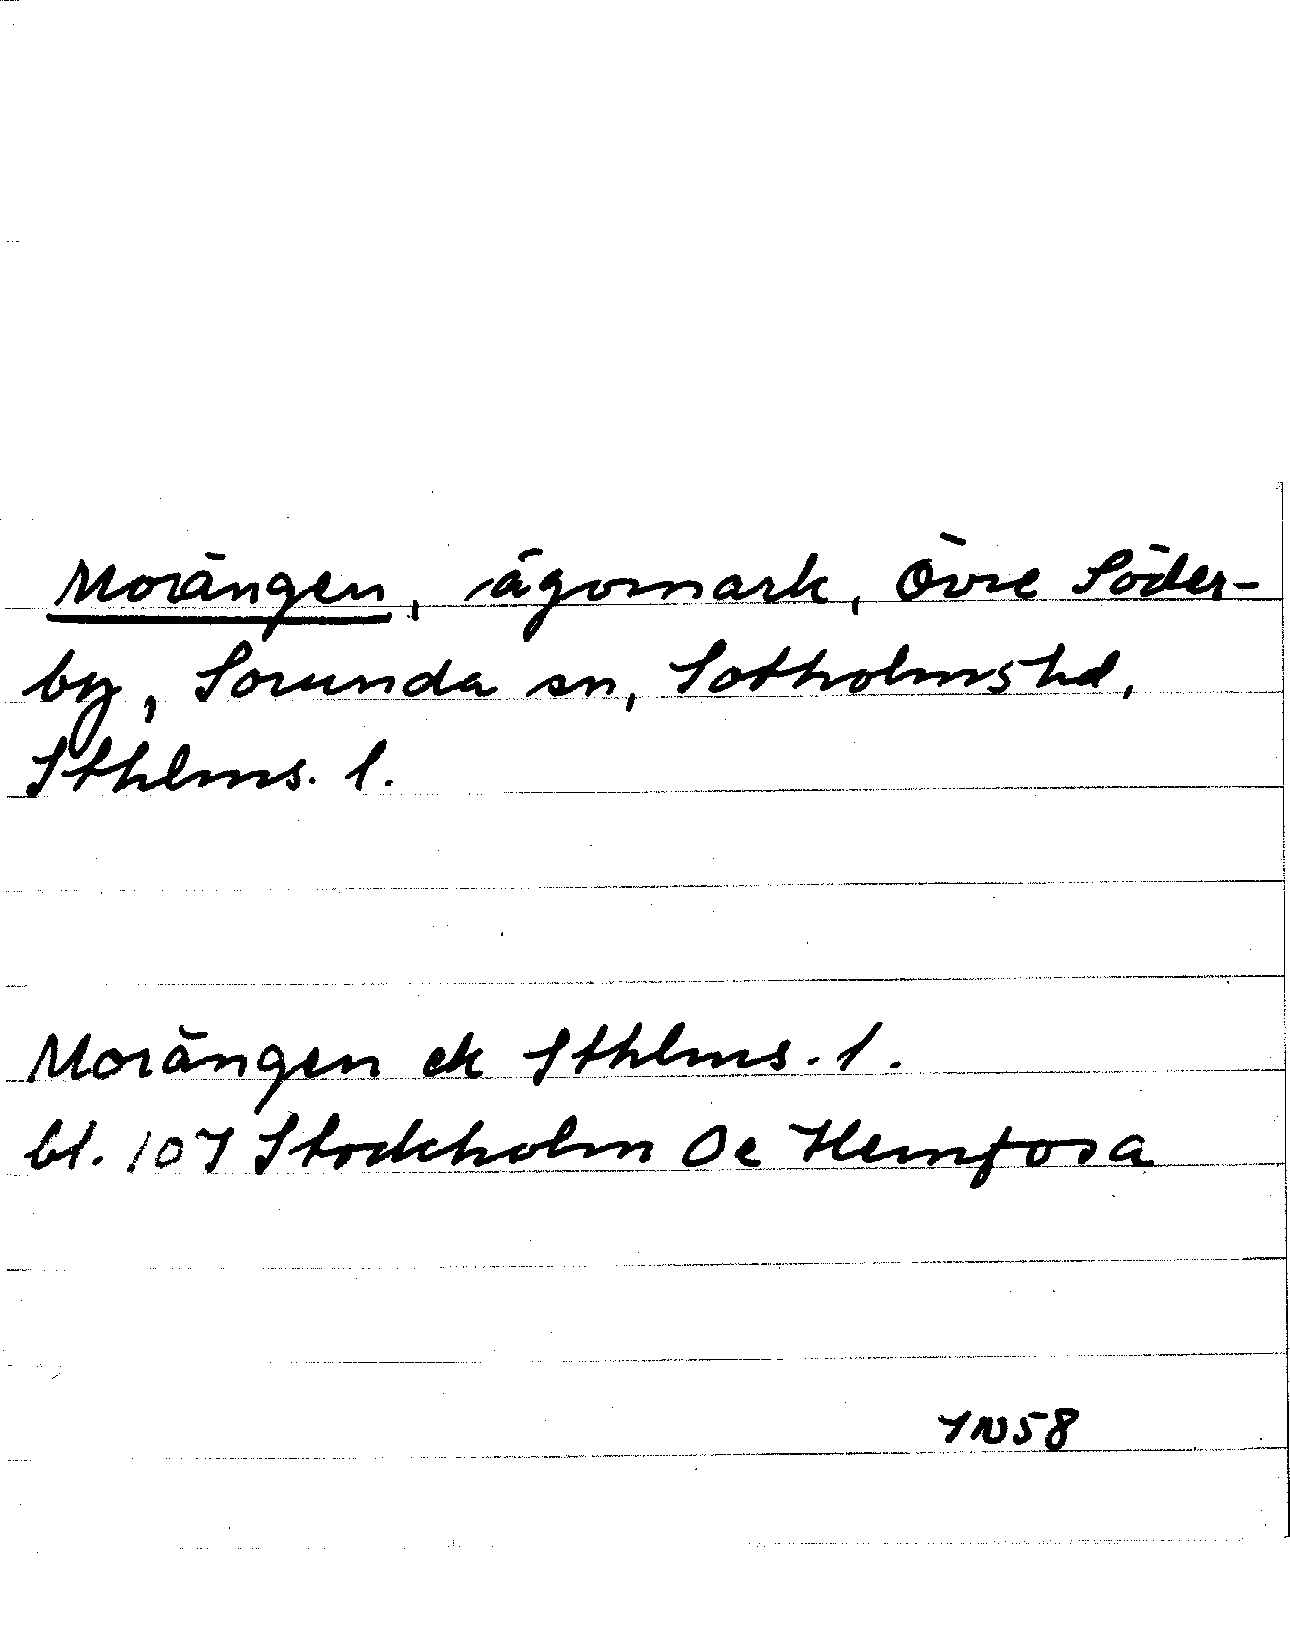 Morängen, ägomark, Övre Söder-
by, Sorunda sn, Sotholmshd,
Sthlms. l.
Morängen ek Sthlms. l.
bl. 107 Stockholm Oe Hemfosa
YN58